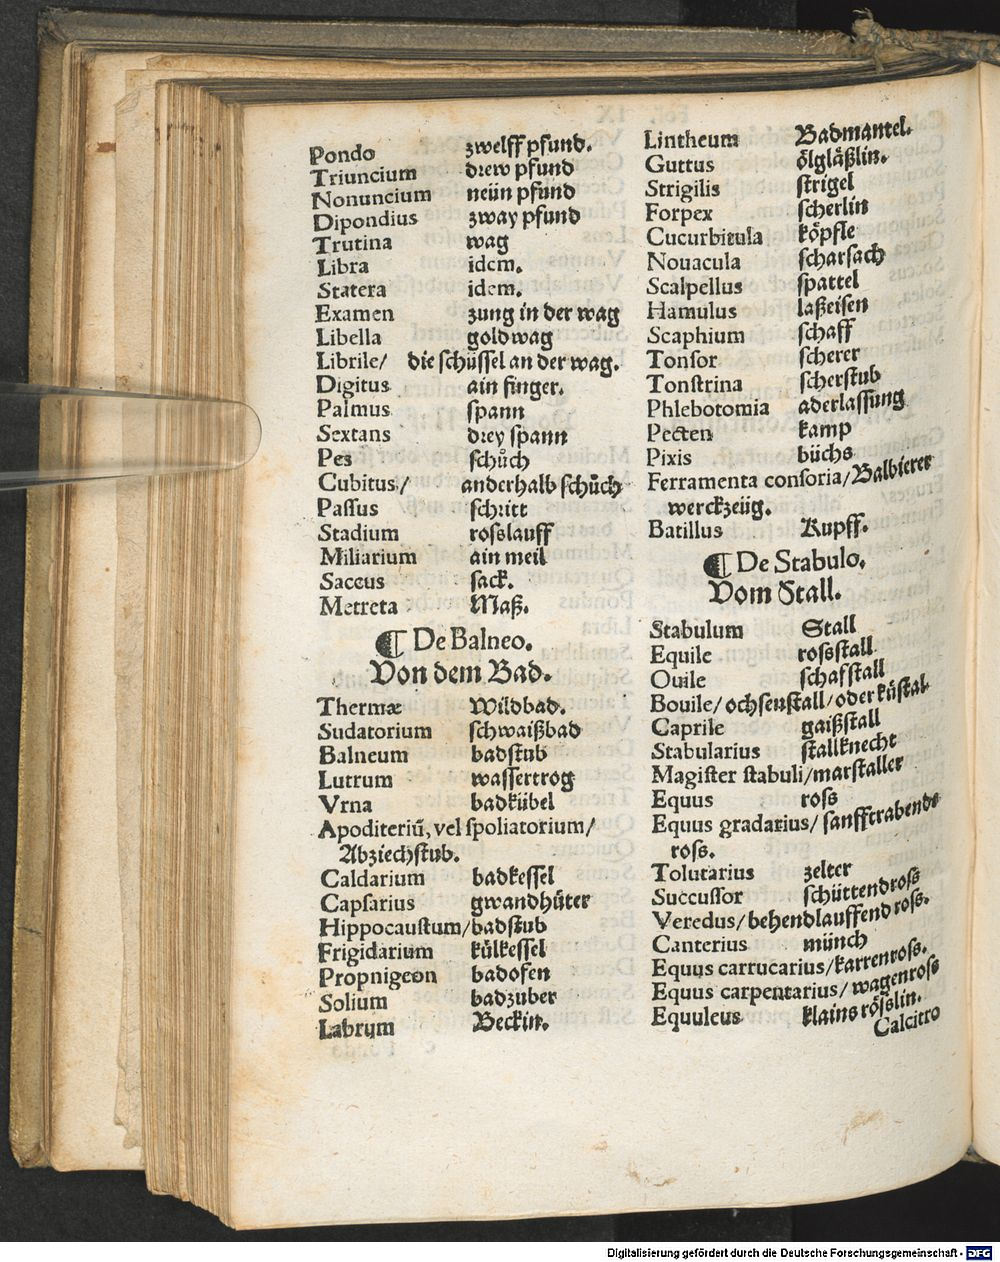 Pondo zwelff pfund.
Triuncium drew pfund
Nonuncium neün pfund
Dipondius zway pfund
Trutina wag
Libra idem.
Statera idem.
Examen zung in der wag
Libella gold wag
Librile/ die schüssel an der wag.
Digitus ain finger.
Palmus spann
Sextans drey spann
Pes schůch
Cubitus/ anderhalb schůch
Paſſus schritt
Stadium rosslauff
Miliarium ain meil
Saccus sack.
Metreta Maß.
¶ De Balneo.
Von dem Bad.
Thermæ Wildbad.
Sudatorium schwaißbad
Balneum badstub
Lutrum wassertrog
Vrna badkübel
Apoditeriũ, vel ſpoliatorium/
Abziechstub.
Caldarium badkessel
Capſarius gwandhüter
Hippocauſtum/ badstub
Frigidarium külkessel
Propnigeon badofen
Solium badzuber
Labrum Beckin.
Lintheum Badmantel.
Guttus ölgläßlin.
Strigilis strigel
Forpex scherlin
Cucurbitula köpfle
Nouacula scharsach
Scalpellus spattel
Hamulus laßeisen
Scaphium schaff
Tonſor scherer
Tonſtrina scherstub
Phlebotomia aderlassung
Pecten kamp
Pixis büchs
Ferramenta conſoria/ Balbierer
werckzeüg.
Batillus Kupff.
¶ De Stabulo.
Vom Stall.
Stabulum Stall
Equile rossstall
Ouile schafstall
Bouile/ ochsenstall/ oder küstal.
Caprile gaißstall
Stabularius stallknecht
Magiſter ſtabuli/ marstaller
Equus ross
Equus gradarius/ sanfftrabends
ross.
Tolutarius zelter
Succuſſor schüttendross
Veredus/ behendlauffend ross.
Canterius münch
Equus carrucarius/ karrenross.
Equus carpentarius/ wagenross
Equuleus klains rösslin.
Calcitro
Digitalisierung gefördert durch die Deutsche Forschungsgemeinschaft - DFG